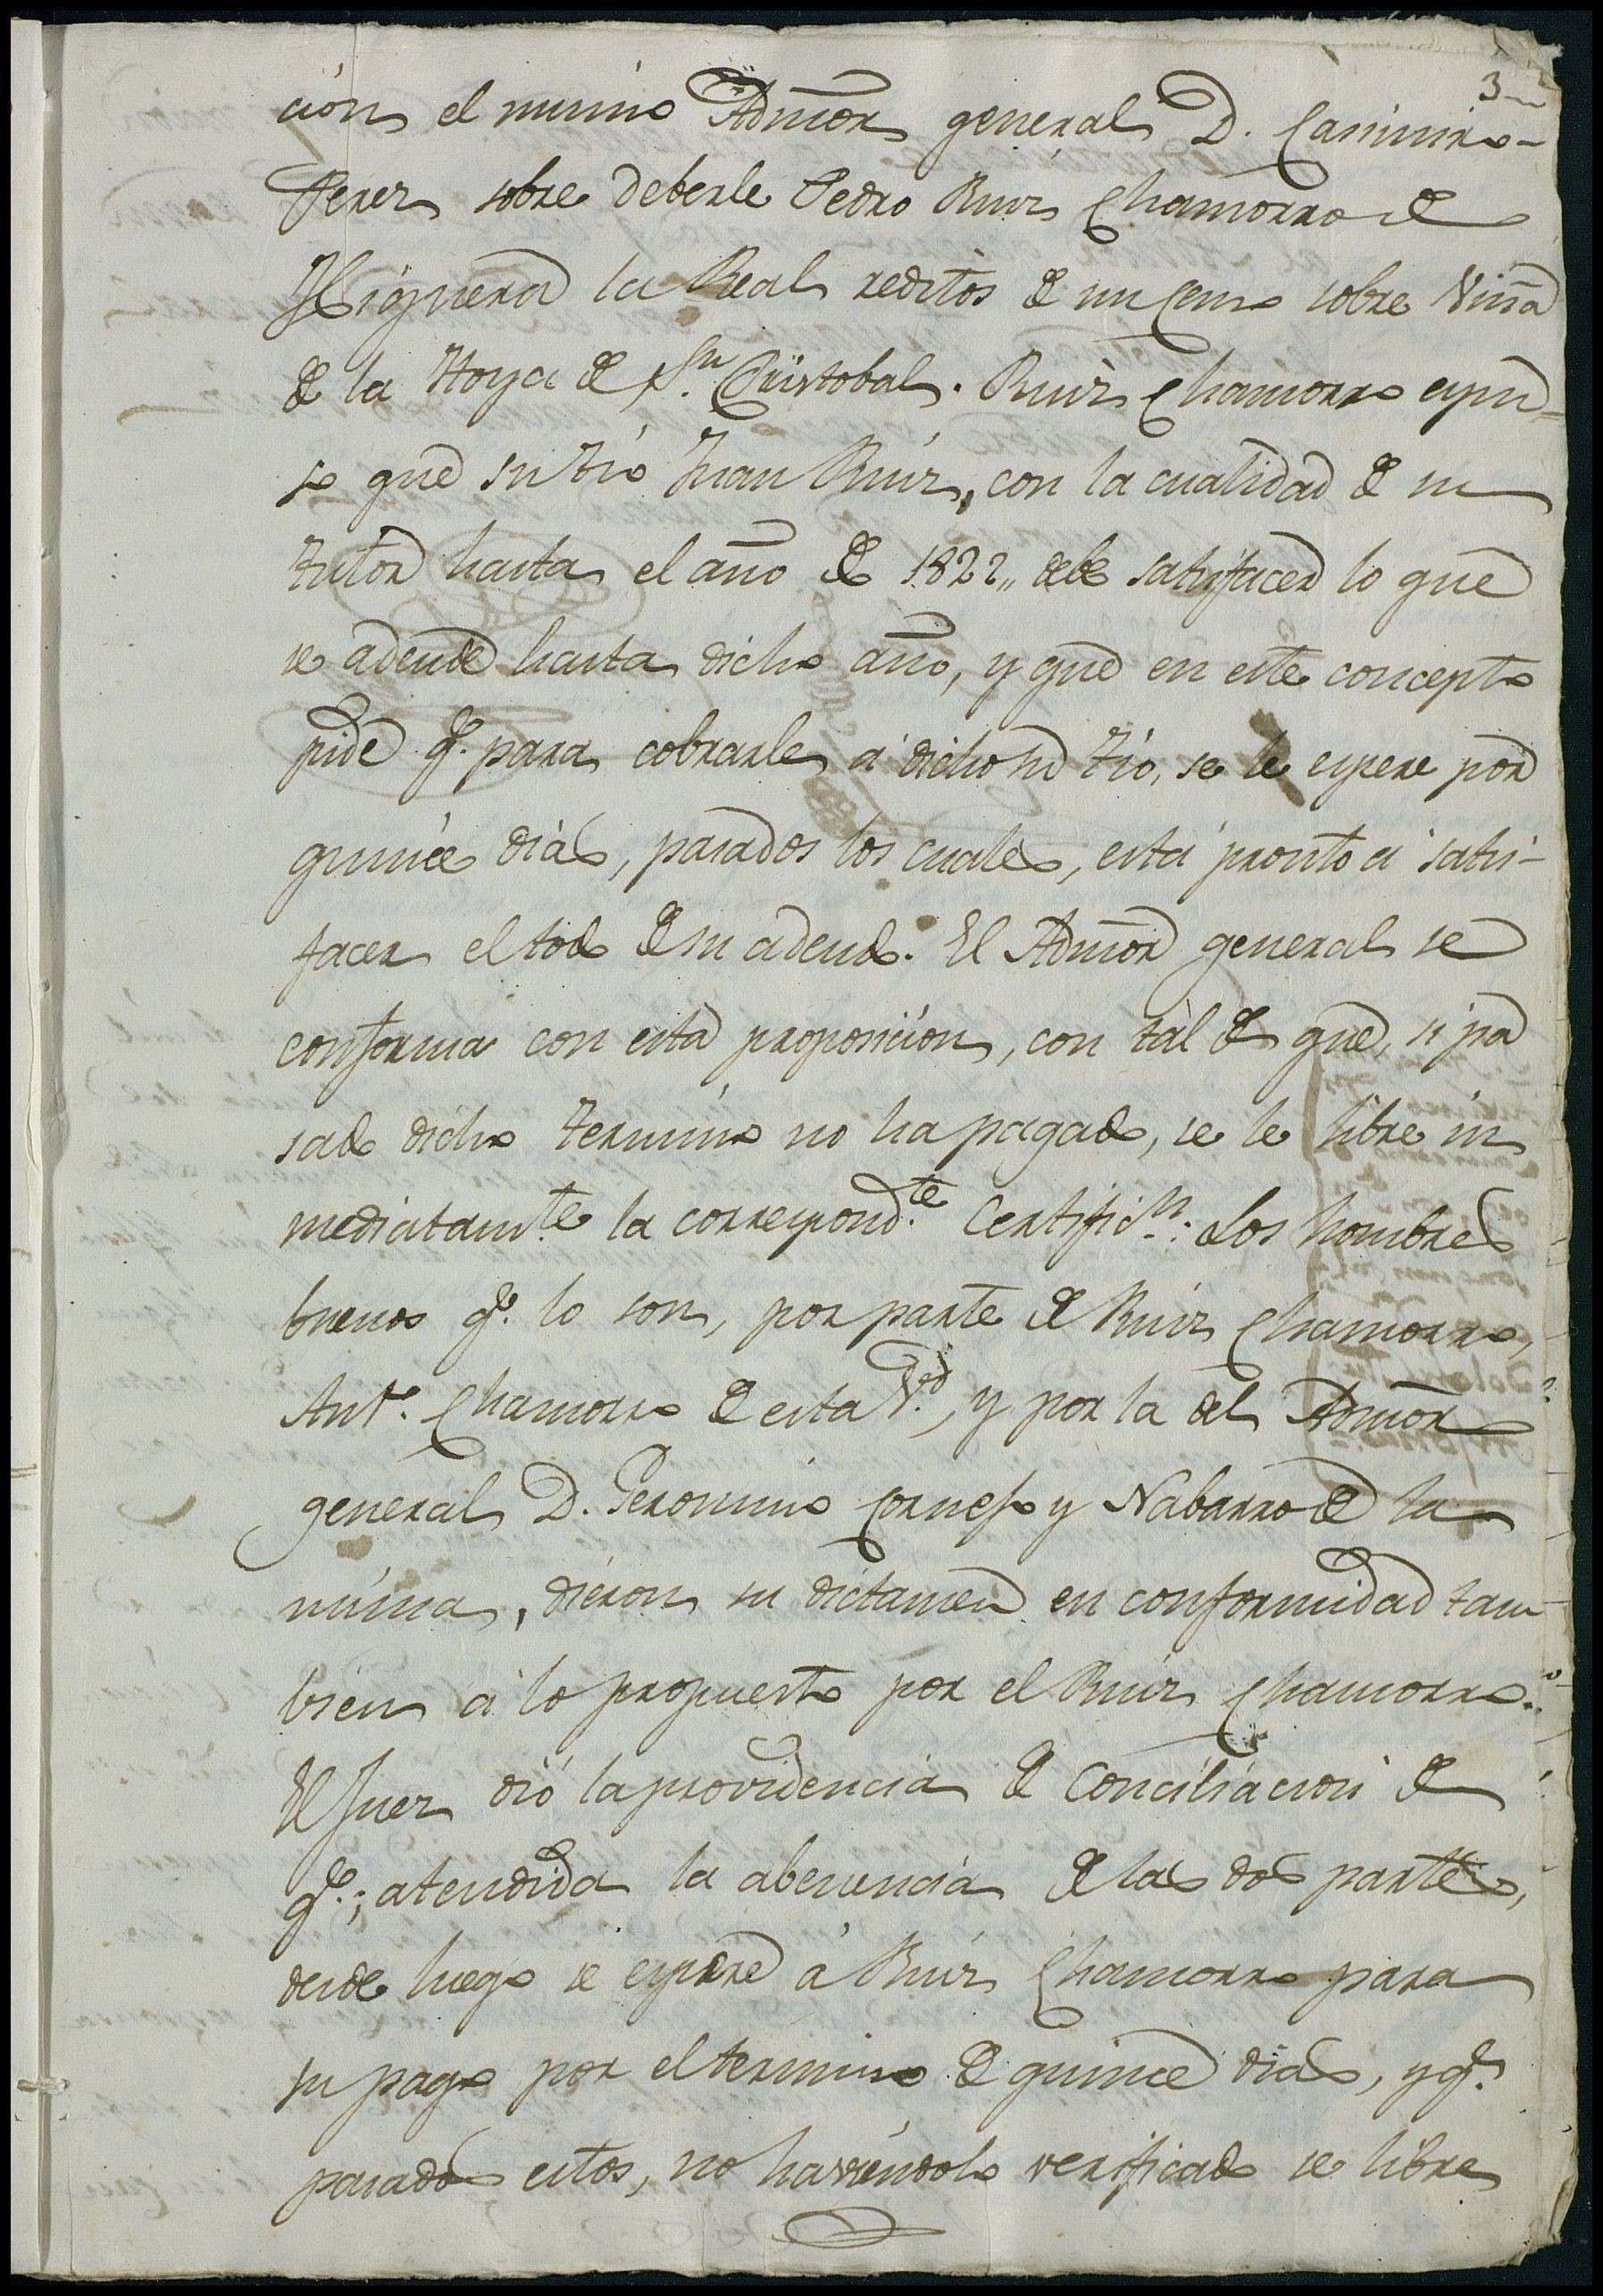 3
ción el mismo Admor general D. Casimiro
Perez sobre deberle Pedro Ruiz Chamorro de
Higuera la Real reditos de un censo sobre Viña
de la Hoya de Sn. Cristobal. Ruiz Chamorro expu-
so que su tio Juan Ruiz, con la cualidad de su
tutor hasta el año de 1822,, debe satisfacer lo que
se adeude hasta dicho año, y que en este concepto
pide q.e para cobrarle á dicho su tio, se le espere por
quince dias, pasados los cuales, está pronto á satis-
facer el todo de su adeudo. El Admor general se
conforma con esta proposicion, con tál de que, si pa
sado dicho termino no ha pagado, se le libre in
mediatam.te la correspond.te Certific.n. Los hombres
buenos q.e lo son, por parte de Ruiz Chamorro,
Ant.o Chamorro de esta V.d, y por la del Admor
general D. Geronimo Cornejo y Nabarro de la
misma, dieron su dictamen en conformidad tam-
bien á lo propuesto por el Ruiz Chamorro.
El Juez dió la providencia de Conciliacion de
q.e; atendida la abenencia de las dos partes,
desde luego se espere á Ruiz Chamorro para
su pago por el termino de quince dias, y q.e
pasados estos, no haviéndolo verificado se libre